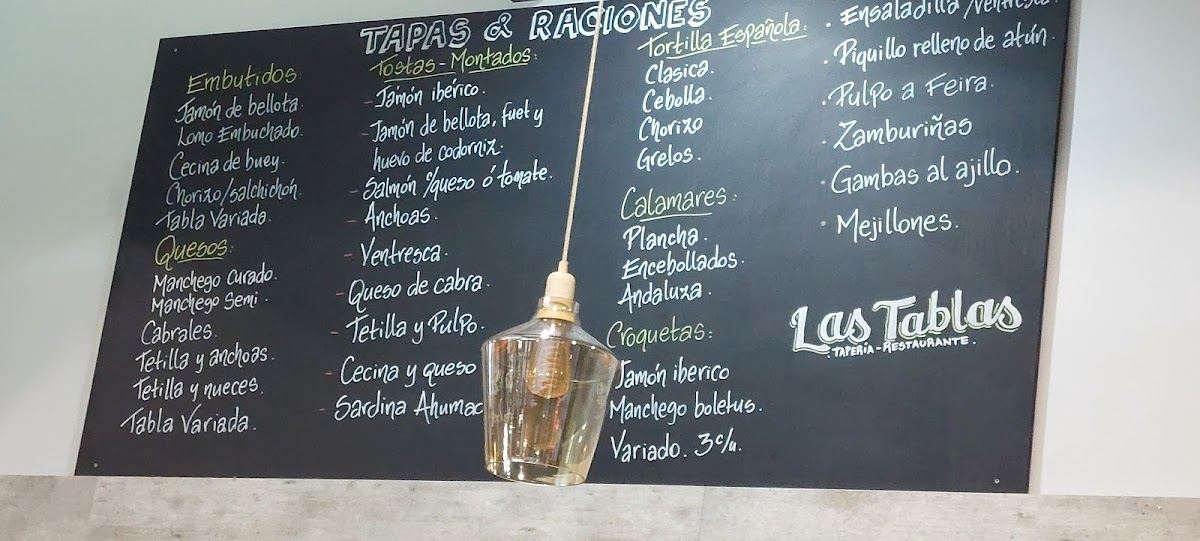 TAPAS & RACIONES
Embutidos:
Jamón de bellota.
Lomo Embuchado.
Cecina de buey.
Chorizo/salchichón.
Tabla Variada.
Quesos:
Manchego curado.
Manchego Semi.
Cabrales.
Tetilla y anchoas.
Tetilla y nueces.
Tabla Variada.
Tostas - Montados:
- Jamón ibérico.
- Jamón de bellota, fuet y
huevo de codorniz.
- Salmón c/queso ó tomate.
- Anchoas.
- Ventresca.
- Queso de cabra.
- Tetilla y Pulpo.
- Cecina y queso
- Sardina
Tortilla Española:
Clasica.
Cebolla.
Chorizo
Grelos.
Calamares:
Plancha.
Encebollados.
Andaluza.
Croquetas:
Jamón iberico
Manchego boletus.
Variado. 3c/u.
. Ensaladilla /Ventresca
. Piquillo relleno de atún.
. Pulpo a Feira.
. Zamburiñas
. Gambas al ajillo.
. Mejillones.
Las Tablas
. TAPERIA - RESTAURANTE .